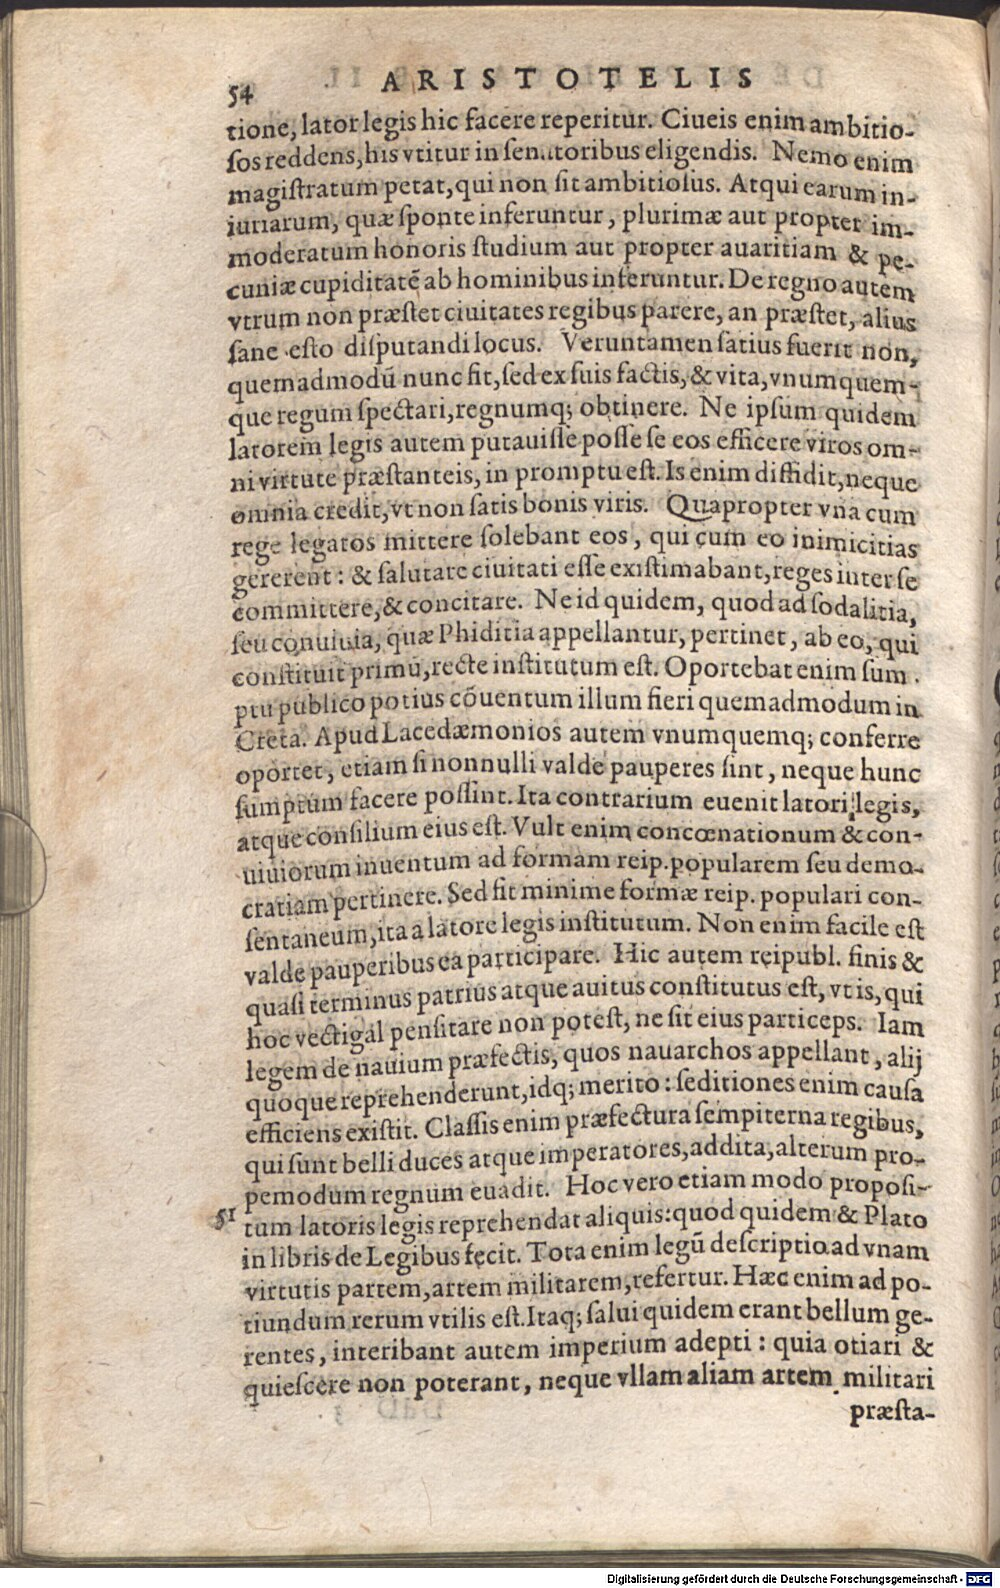 54 ARISTOTELIS
tione, lator legis hic facere reperitur. Ciueis enim ambitio-
ſos reddens, his vtitur in ſenatoribus eligendis. Nemo enim
magiſtratum petat, qui non ſit ambitioſus. Atqui earum in-
iuriarum, quæ ſponte inferuntur, plurimæ aut propter im-
moderatum honoris ſtudium aut propter auaritiam & pe-
cuniæ cupiditatē ab hominibus inferuntur. De regno autem
vtrum non præſtet ciuitates regibus parere, an præſtet, alius
ſane eſto diſputandi locus. Veruntamen ſatius fuerit non,
quemadmodū nunc fit, ſed ex ſuis factis, & vita, vnumquem-
que regum ſpectari, regnumq; obtinere. Ne ipſum quidem
latorem legis autem putauiſſe poſſe ſe eos efficere viros om-
ni virtute præſtanteis, in promptu eſt. Is enim diffidit, neque
omnia credit, vt non ſatis bonis viris. Quapropter vna cum
rege legatos mittere ſolebant eos, qui cum eo inimicitias
gererent: & ſalutare ciuitati eſſe exiſtimabant, reges inter ſe
committere, & concitare. Ne id quidem, quod ad ſodalitia,
ſeu conuiuia, quæ Phiditia appellantur, pertinet, ab eo, qui
conſtituit primū, recte inſtitutum eſt. Oportebat enim ſum.
ptu publico potius cōuentum illum fieri quemadmodum in
Creta. Apud Lacedæmonios autem vnumquemq; conferre
oportet, etiam ſi nonnulli valde pauperes ſint, neque hunc
ſumptum facere poſſint. Ita contrarium euenit latori legis,
atque conſilium eius eſt. Vult enim concœnationum & con-
uiuiorum inuentum ad formam reip. popularem ſeu demo-
cratiam pertinere. Sed fit minime formæ reip. populari con-
ſentaneum, ita a latore legis inſtitutum. Non enim facile eſt
valde pauperibus ea participare. Hic autem reipubl. finis &
quaſi terminus patrius atque auitus conſtitutus eſt, vt is, qui
hoc vectigal penſitare non poteſt, ne ſit eius particeps. Iam
legem de nauium præfectis, quos nauarchos appellant, alij
quoque reprehenderunt, idq; merito: ſeditiones enim cauſa
efficiens exiſtit. Claſſis enim præfectura ſempiterna regibus,
qui ſunt belli duces atque imperatores, addita, alterum pro-
pemodum regnum euadit. Hoc vero etiam modo propoſi-
51 tum latoris legis reprehendat aliquis: quod quidem & Plato
in libris de Legibus fecit. Tota enim legū deſcriptio ad vnam
virtutis partem, artem militarem, refertur. Hæc enim ad po-
tiundum rerum vtilis eſt. Itaq; ſalui quidem erant bellum ge-
rentes, interibant autem imperium adepti: quia otiari &
quieſcere non poterant, neque vllam aliam artem militari
præſta-
Digitalisierung gefördert durch die Deutsche Forschungsgemeinschaft - DFG